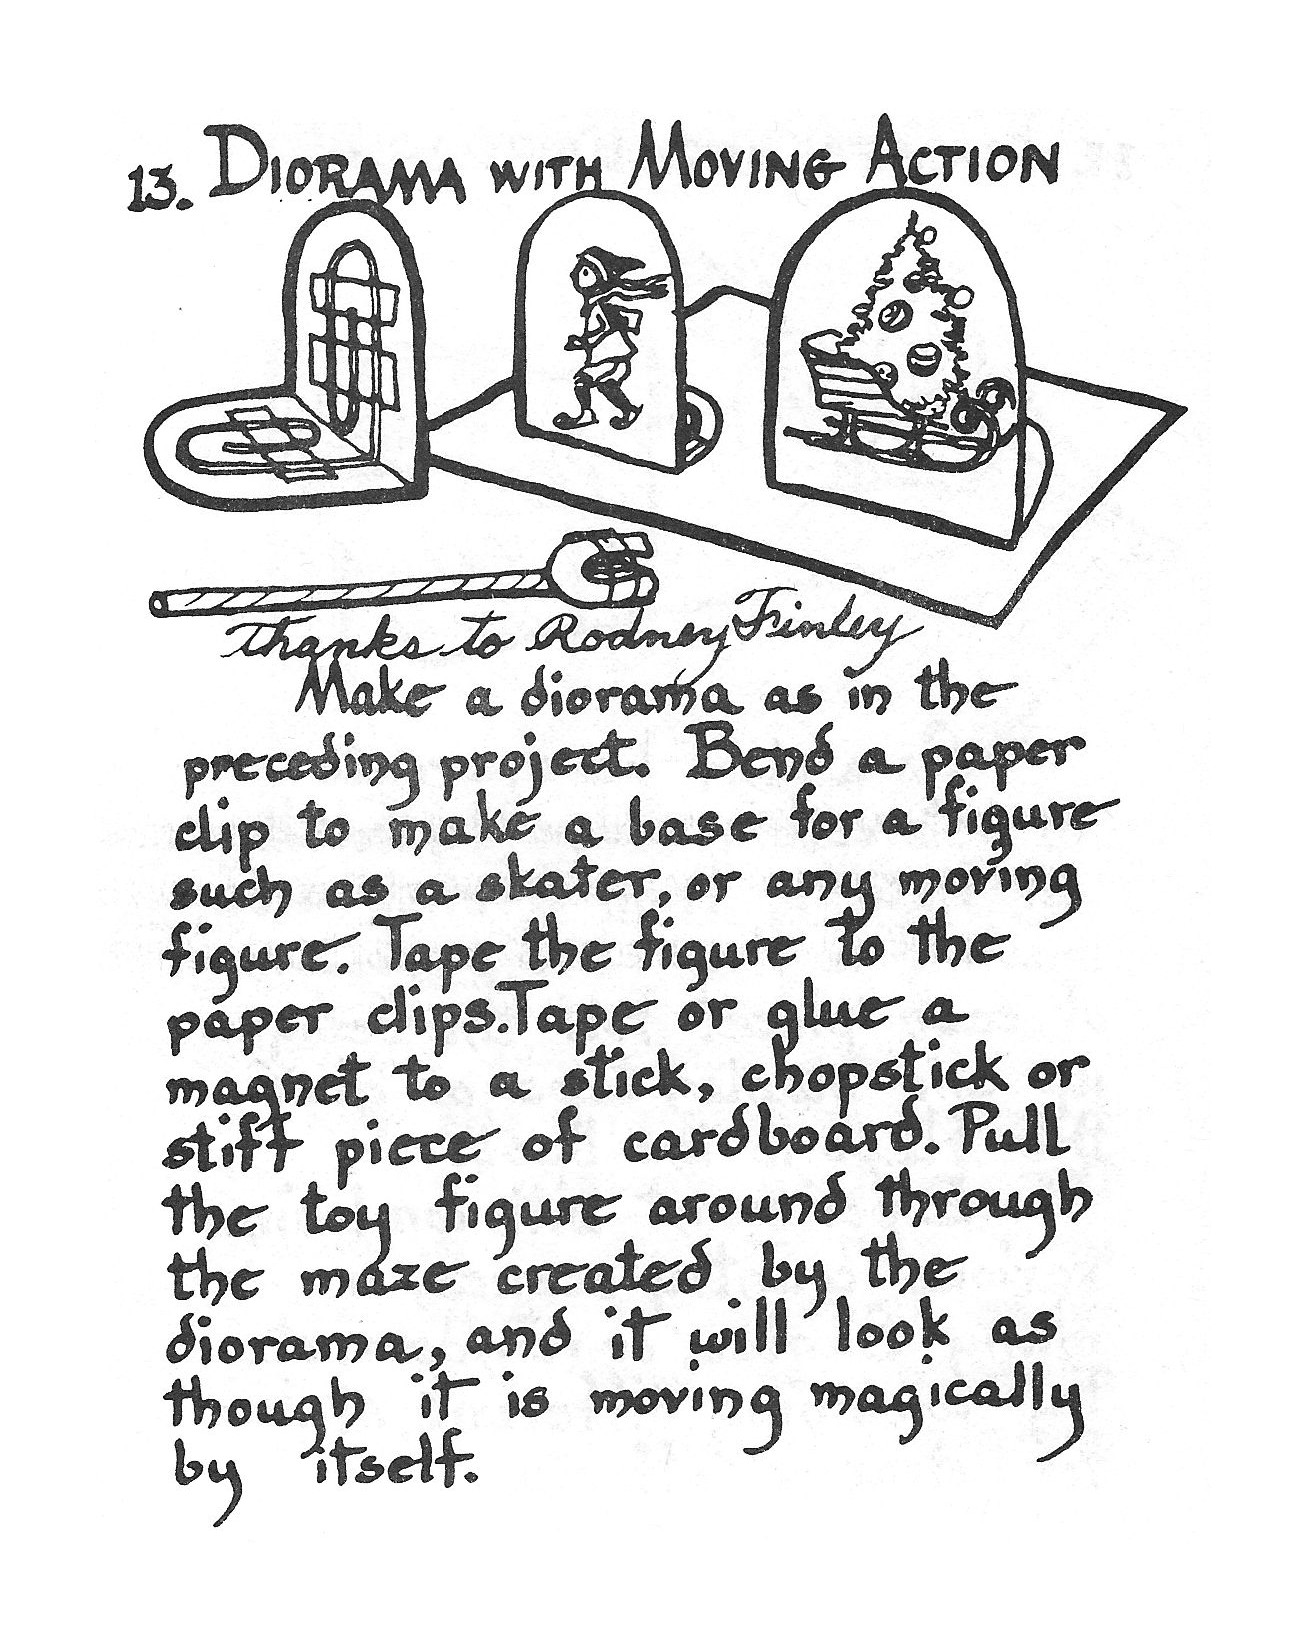 13. DIORAMA WITH MOVING ACTION
Thanks to Rodney Finley
Make a diorama as in the
preceding project. Bend a paper
clip to make a base for a figure
such as a skater, or any moving
figure. Tape the figure to the
paper clips. Tape or glue a
magnet to a stick, chopstick or
stiff piece of cardboard. Pull
the toy figure around through
the maze created by the
diorama, and it will look as
though it is moving magically
by itself.